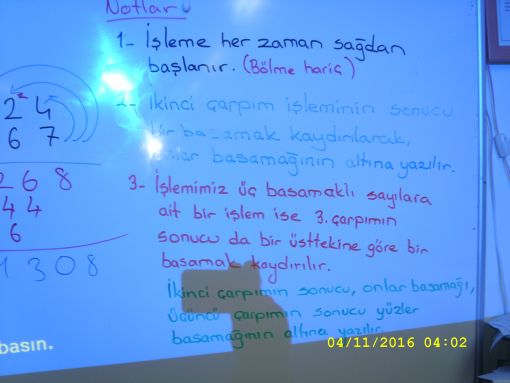 Notlar
1- İşleme her zaman sağdan
başlanır. (Bölme hariç)
2- İkinci çarpım işleminin sonucu
bir basamak kaydırılarak,
onlar basamağının altına yazılır.
3- İşlemimiz üç basamaklı sayılara
ait bir işlem ise 3. çarpımın
sonucu da bir üsttekine göre bir
basamak kaydırılır.
İkinci çarpımın sonucu, onlar basamağı,
üçüncü çarpımın sonucu yüzler
basamağının altına yazılır.
2 4
6 7
2 6 8
4 4
6
1 3 0 8
basın.
04/11/2016 04:02